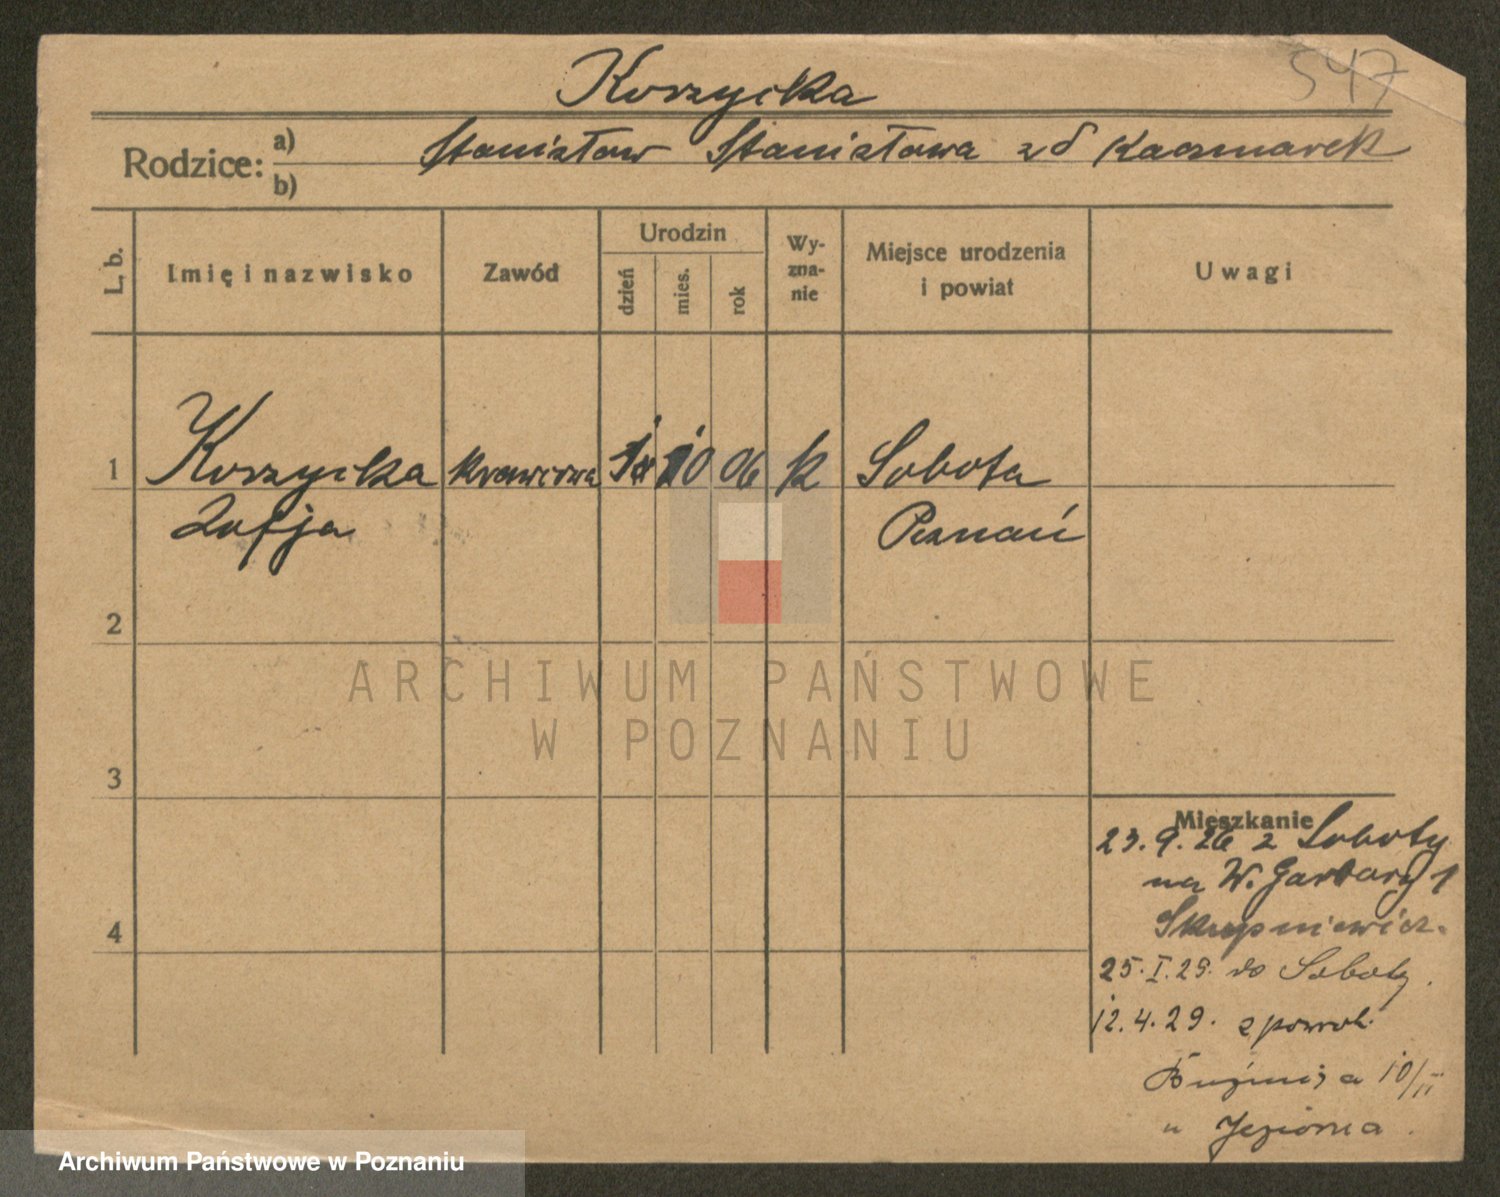 Koszycka
547
Rodzice: a) Stanisław Stanisława zd Kaczmarek
b)
L. b.
Imię i nazwisko
Zawód
Urodzin
dzień
mies.
rok
Wy-
zna-
nie
Miejsce urodzenia
i powiat
Uwagi
1
Koszycka krawcowa 10 06 k Sobota
Zofja Poznań
2
3
4
ARCHIWUM PAŃSTWOWE
W POZNANIU
Mieszkanie
23.9.26 z Soboty
na W. Garbary 1
Skrypniewicz.
25.I.29. do Soboty.
12.4.29. z powrot.
10/II
u Jeziorna.
Archiwum Państwowe w Poznaniu